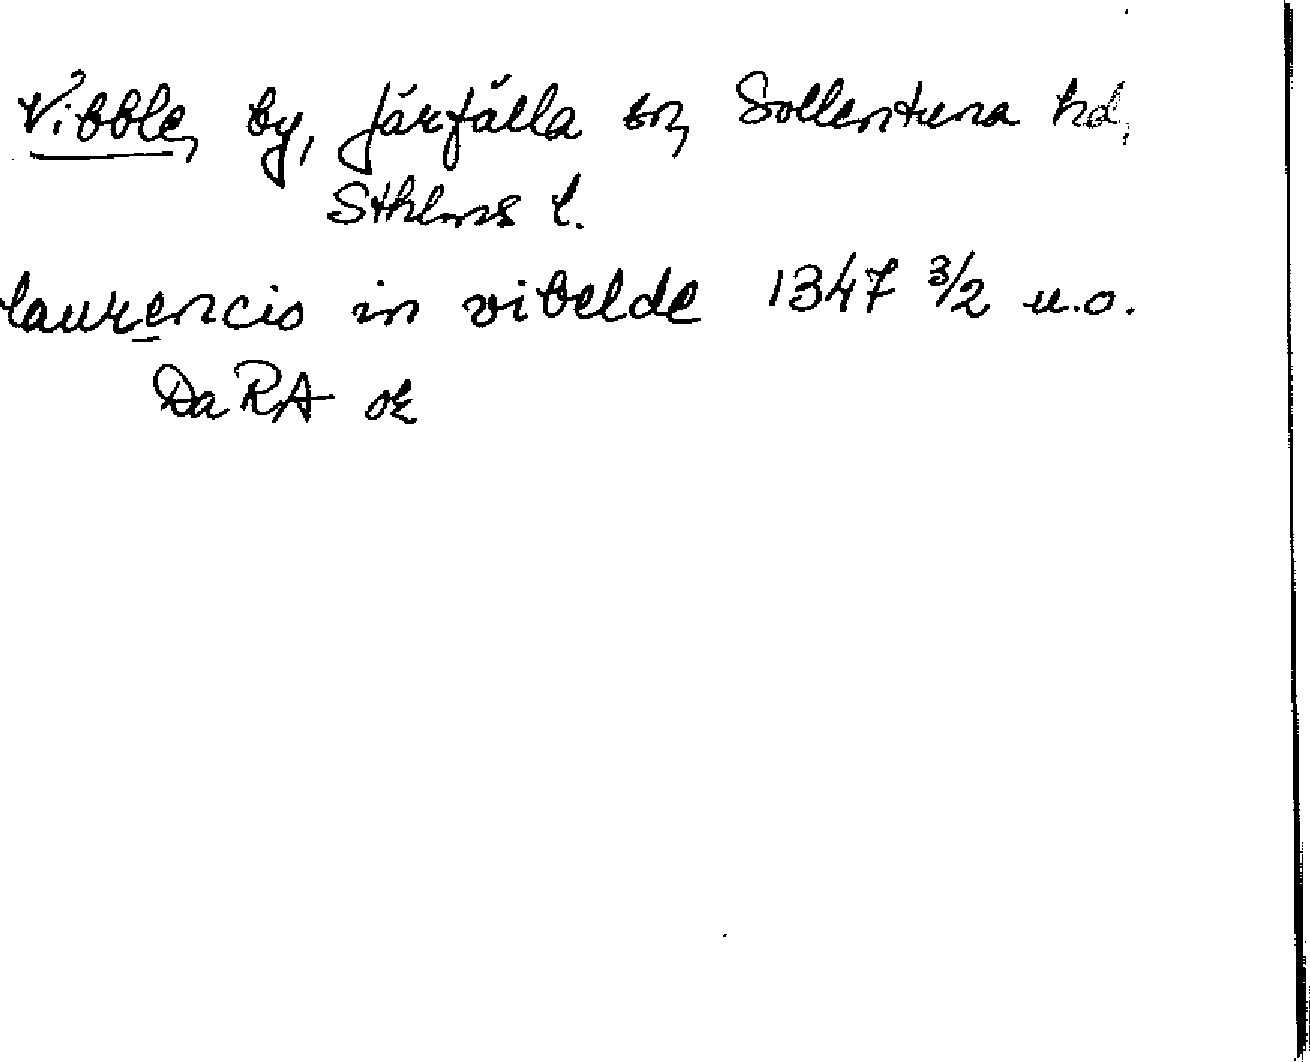 Vibble, by, Järfälla sn, Sollentuna hd,
Sthlms l.
laurencio in vibelde 1347 3/2 u.o.
Da RA or